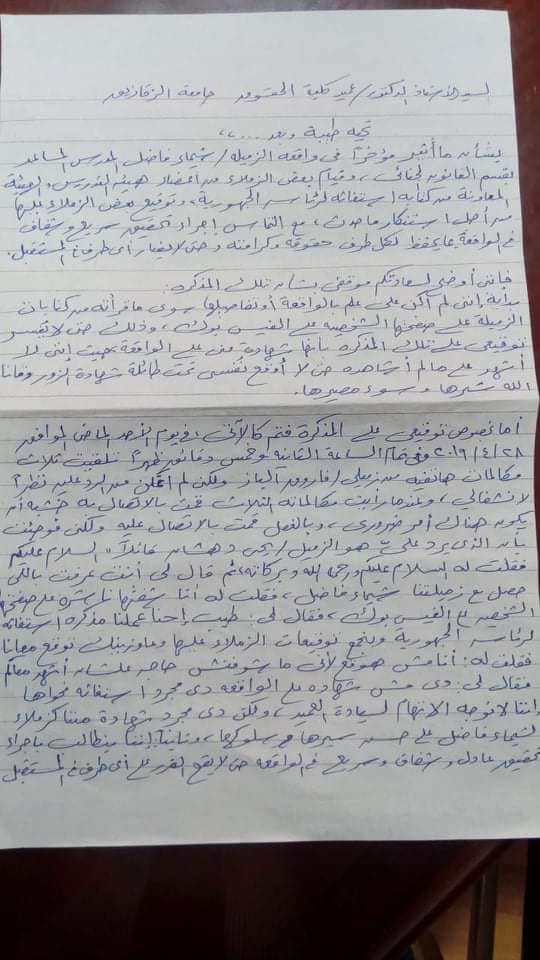 السيد الأستاذ الدكتور/ عميد كلية الحقوق جامعة الزقازيق
تحية طيبة وبعد ...،،
بشأن ما أثير مؤخراً فى واقعة الزميلة/ شيماء فاضل المدرس المساعد
بقسم القانون الجنائى، وقيام بعض الزملاء من أعضاء هيئة التدريس والهيئة
المعاونة من كتابة استغاثة لرئاسة الجمهورية، وتوقيع بعض الزملاء عليها
من أجل استنكار ما حدث، مع التماس إجراء تحقيق سريع وشفاف
فى الواقعة بما يحفظ لكل طرف حقوقه وكرامته وحتى لا يضار أى طرف فى المستقبل.
فإننى أوضح لسعادتكم موقفى بشأن تلك المذكرة:
بداية إننى لم أكن على علم بالواقعة أو تفاصيلها سوى ما قرأته من كتابات
الزميلة على صفحتها الشخصية على الفيس بوك، وذلك حتى لا يُفسر
توقيعى على تلك المذكرة بأنها شهادة منى على الواقعة بحيث إننى لا
أشهد على ما لم أشاهده حتى لا أوقع نفسى تحت طائلة شهادة الزور وقانا
الله شرها وسوء مصيرها.
أما بخصوص توقيعى على المذكرة فتم كالآتى: فى يوم الأحد الماضى الموافق
٢٨/٤/٢٠١٩ وفى تمام الساعة الثانية وخمس دقائق ظهراً تلقيت ثلاث
مكالمات هاتفية من زميلى/ فاروق الباز ولكن لم أتمكن من الرد عليه نظراً
لانشغالى، وعندما رأيت مكالماته الثلاث قمت بالاتصال به خشية أن
يكون هناك أمر ضرورى، وبالفعل قمت بالاتصال عليه ولكنى فوجئت
بأن الذى يرد علىّ هو الزميل/ يحيى دهشان قائلاً: السلام عليكم
فقلت له السلام عليكم ورحمة الله وبركاته، ثم قال لى أنت عرفت باللى
حصل مع زميلتنا شيماء فاضل، فقلت له أنا شفتها ناشره على صفحتها
الشخصية على الفيس بوك، فقال لى: طيب إحنا عملنا مذكرة استغاثة
لرئاسة الجمهورية وبنجمع توقيعات الزملاء عليها وعاوزينك توقع معانا
فقلت له: أنا مش هوقع لأنى ما شوفتش حاجه علشان أشهد معاكم
فقال لى: دى مش شهاده على الواقعه دى مجرد استغاثه فحواها
إننا لا نوجه الاتهام لسعادة العميد، ولكن دى مجرد شهادة مننا كزملاء
لشيماء فاضل على حسن سيرها وسلوكها، وثانياً إننا بنطالب بإجراء
تحقيق عادل وشفاف وسريع فى الواقعه حتى لا يقع الضرر على أى طرف فى المستقبل